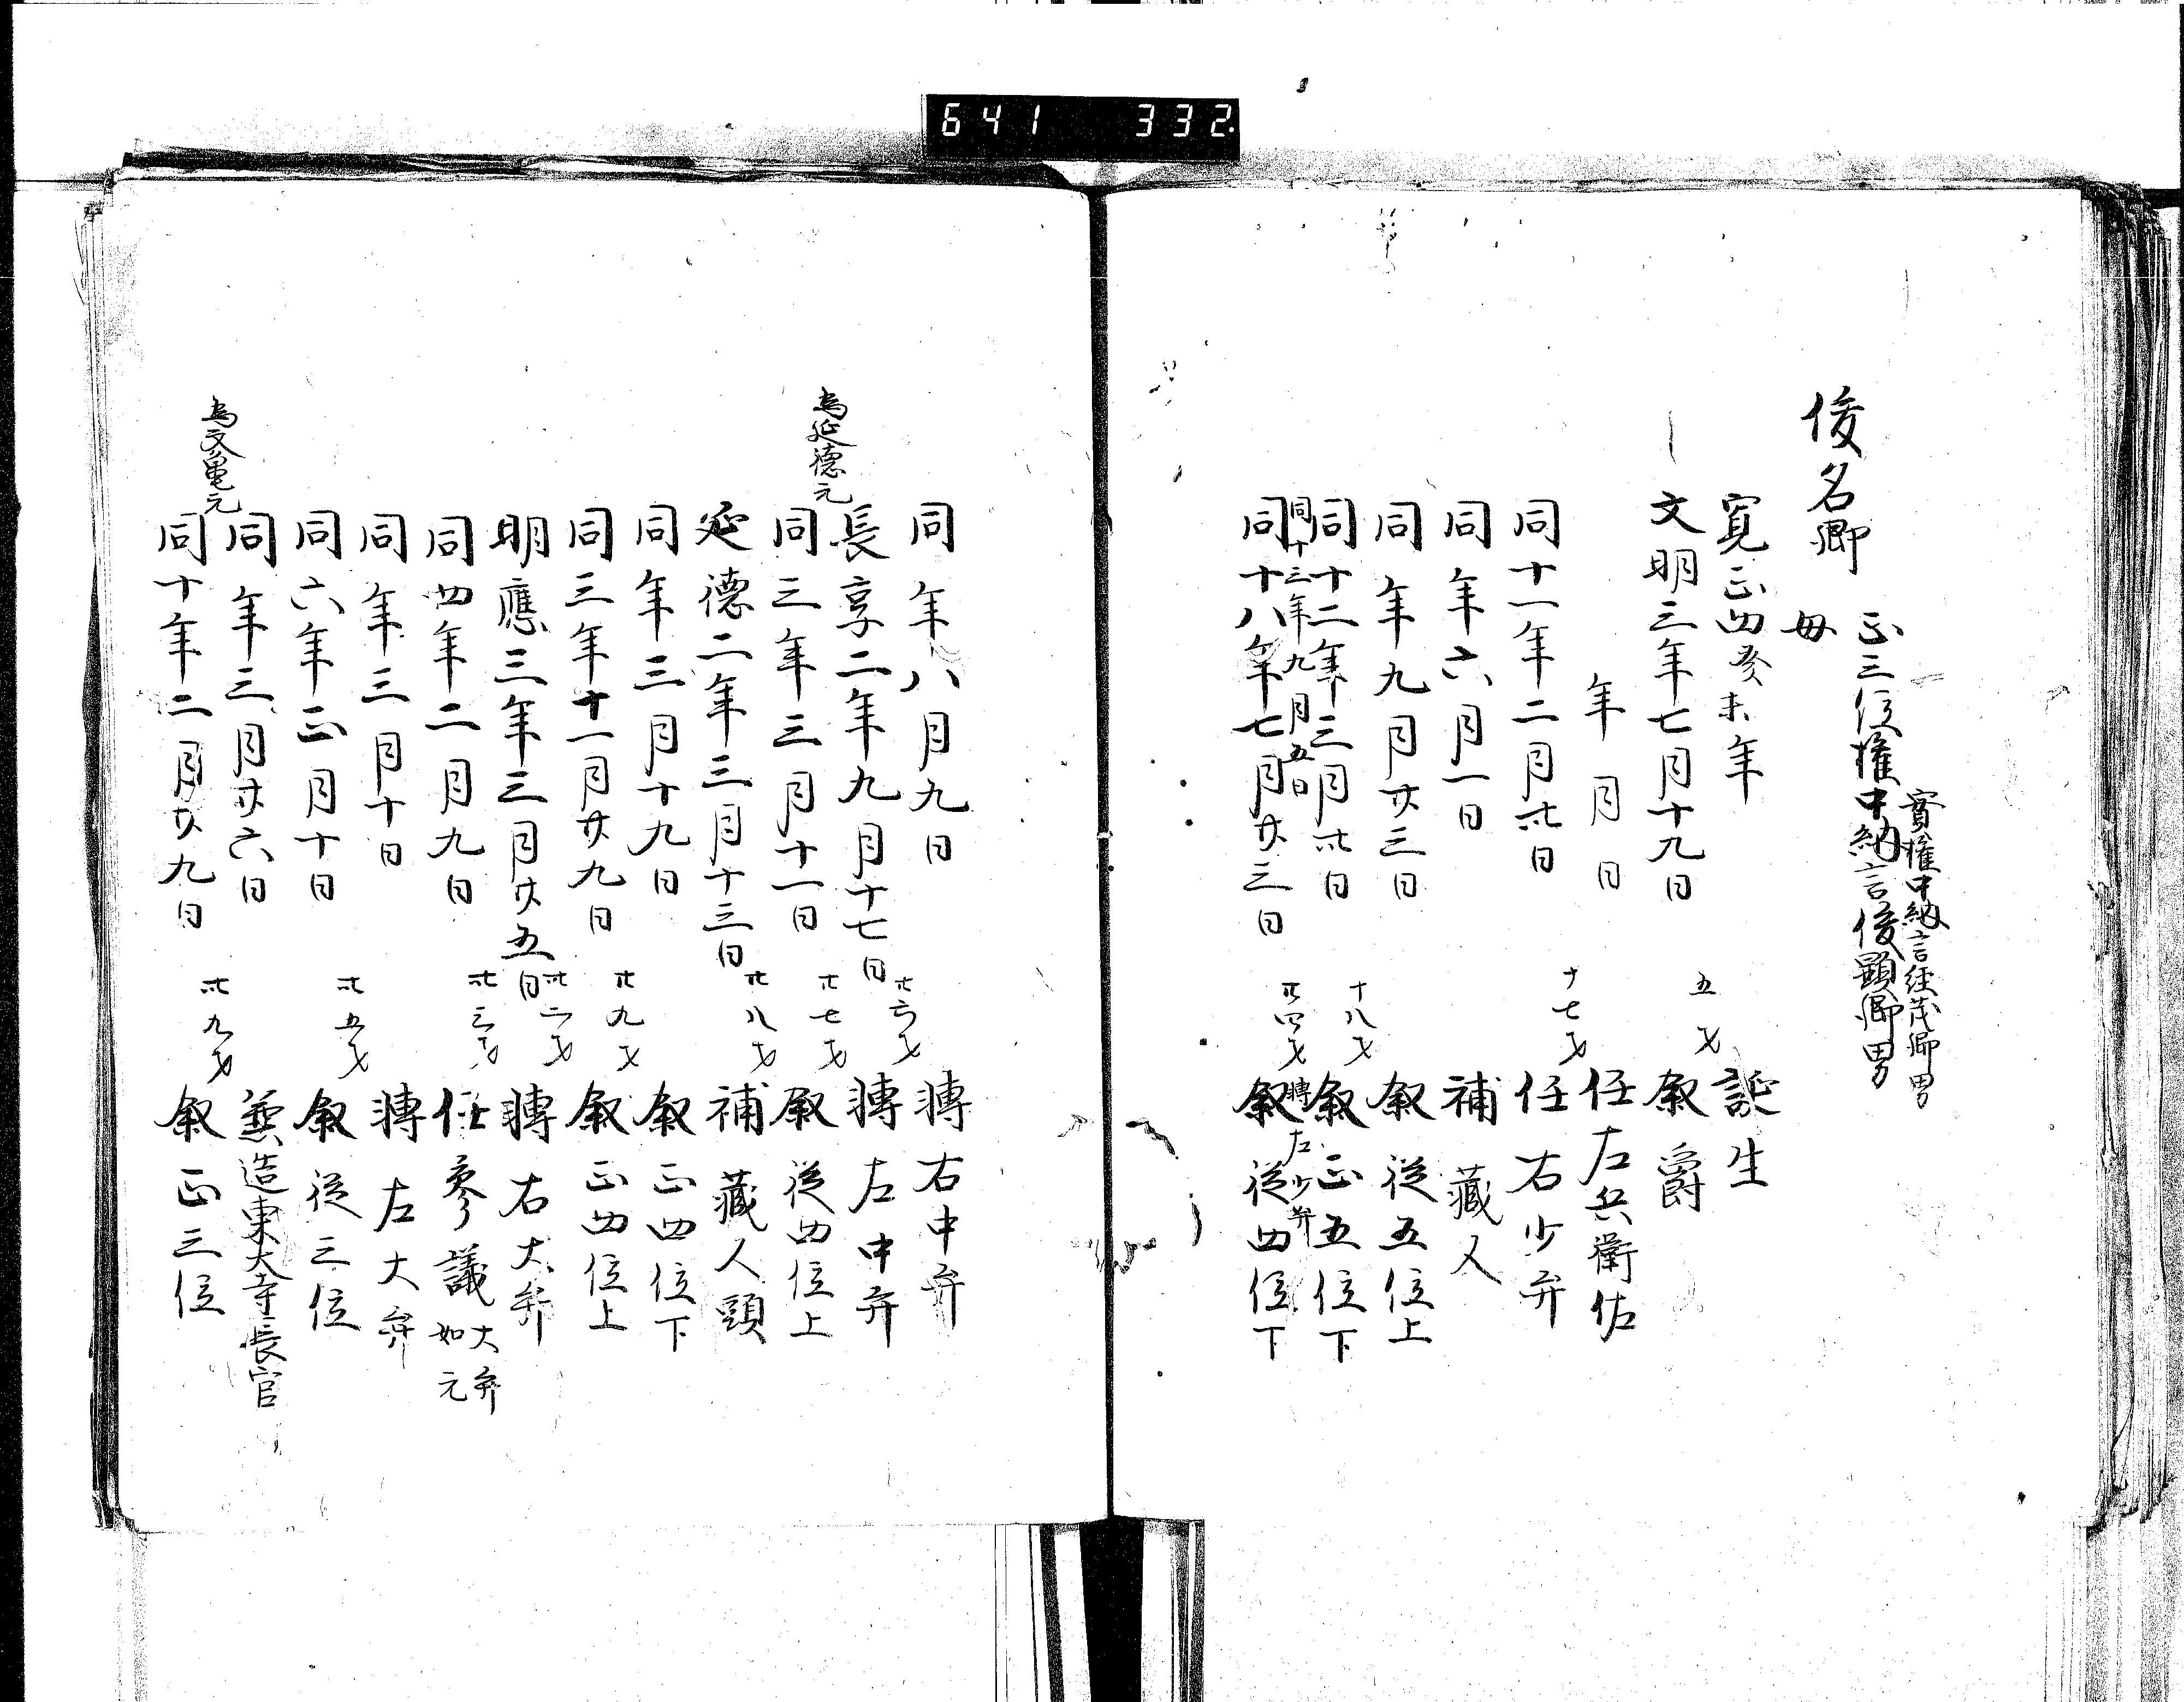 641 332
俊名卿
正三位権中納言俊顕卿男
實権中納言経茂卿男
母
寛正四癸未年 誕生
文明三年七月十九日 五才 叙爵
年 月 日 任左兵衛佐
同十一年二月卅日 十七才 任右少弁
同年六月一日 補蔵人
同年九月廿三日 叙従五位上
同十二年三月卅日 十八才 叙正五位下
同十三年九月五日 轉左少弁
同十八年七月廿三日 廿四才 叙従四位下
同年八月九日 轉右中弁
長享二年九月十七日 廿六才 轉左中弁
為延徳元
同三年三月十一日 廿七才 叙従四位上
延徳二年三月十三日 廿八才 補蔵人頭
同年三月十九日 叙正四位下
同三年十一月廿九日 廿九才 叙正四位上
明應三年三月廿五日 卅二才 轉右大弁
同四年二月九日 卅三才 任参議 大弁如元
同年三月十日 轉左大弁
同六年正月十日 卅五才 叙従三位
同年三月廿六日 兼造東大寺長官
為文亀元
同十年二月廿九日 卅九才 叙正三位